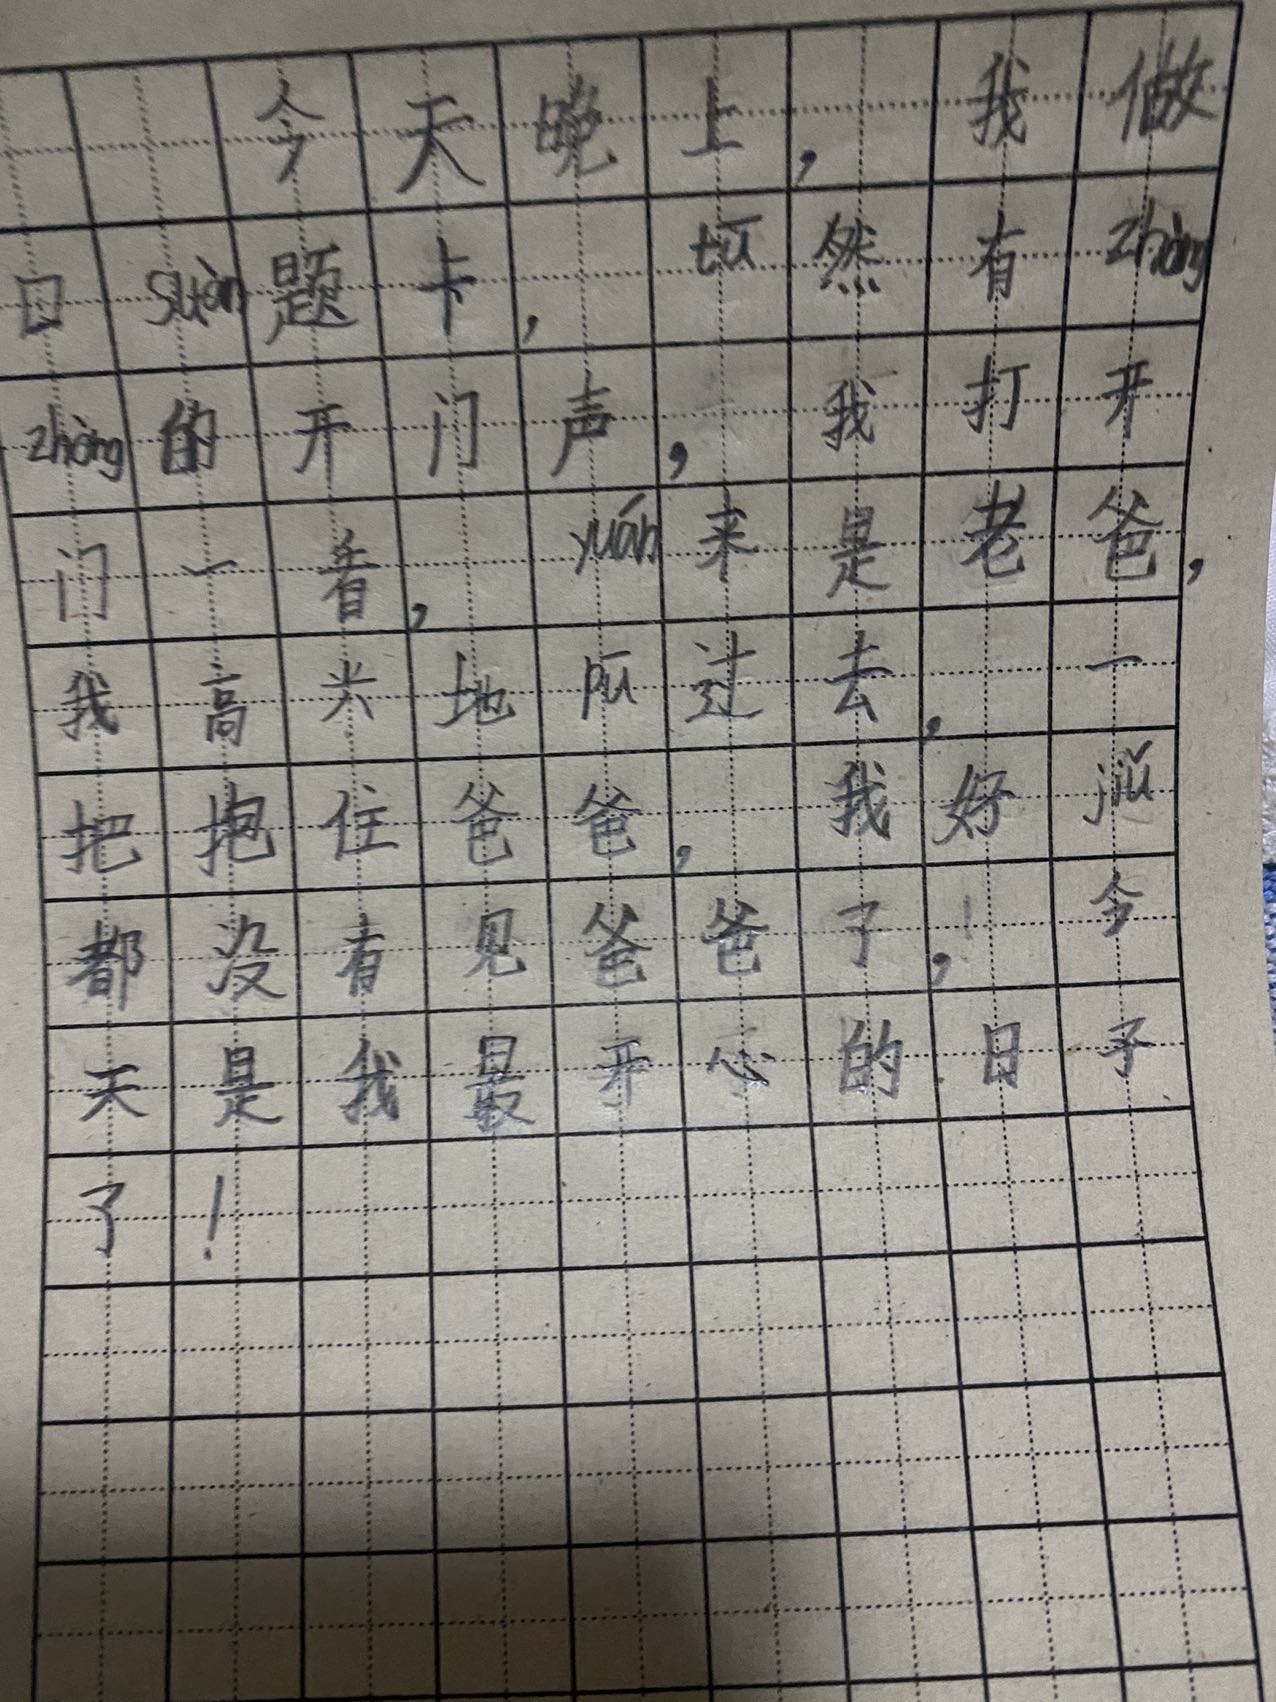 今天晚上，我做
口suàn题卡，tū然有zhòng
zhòng的开门声，我打开
门一看，yuán来是老爸，
我高兴地pū过去，一
把抱住爸爸，我好jiǔ
都没有见爸爸了，！今
天是我最开心的日子
了！